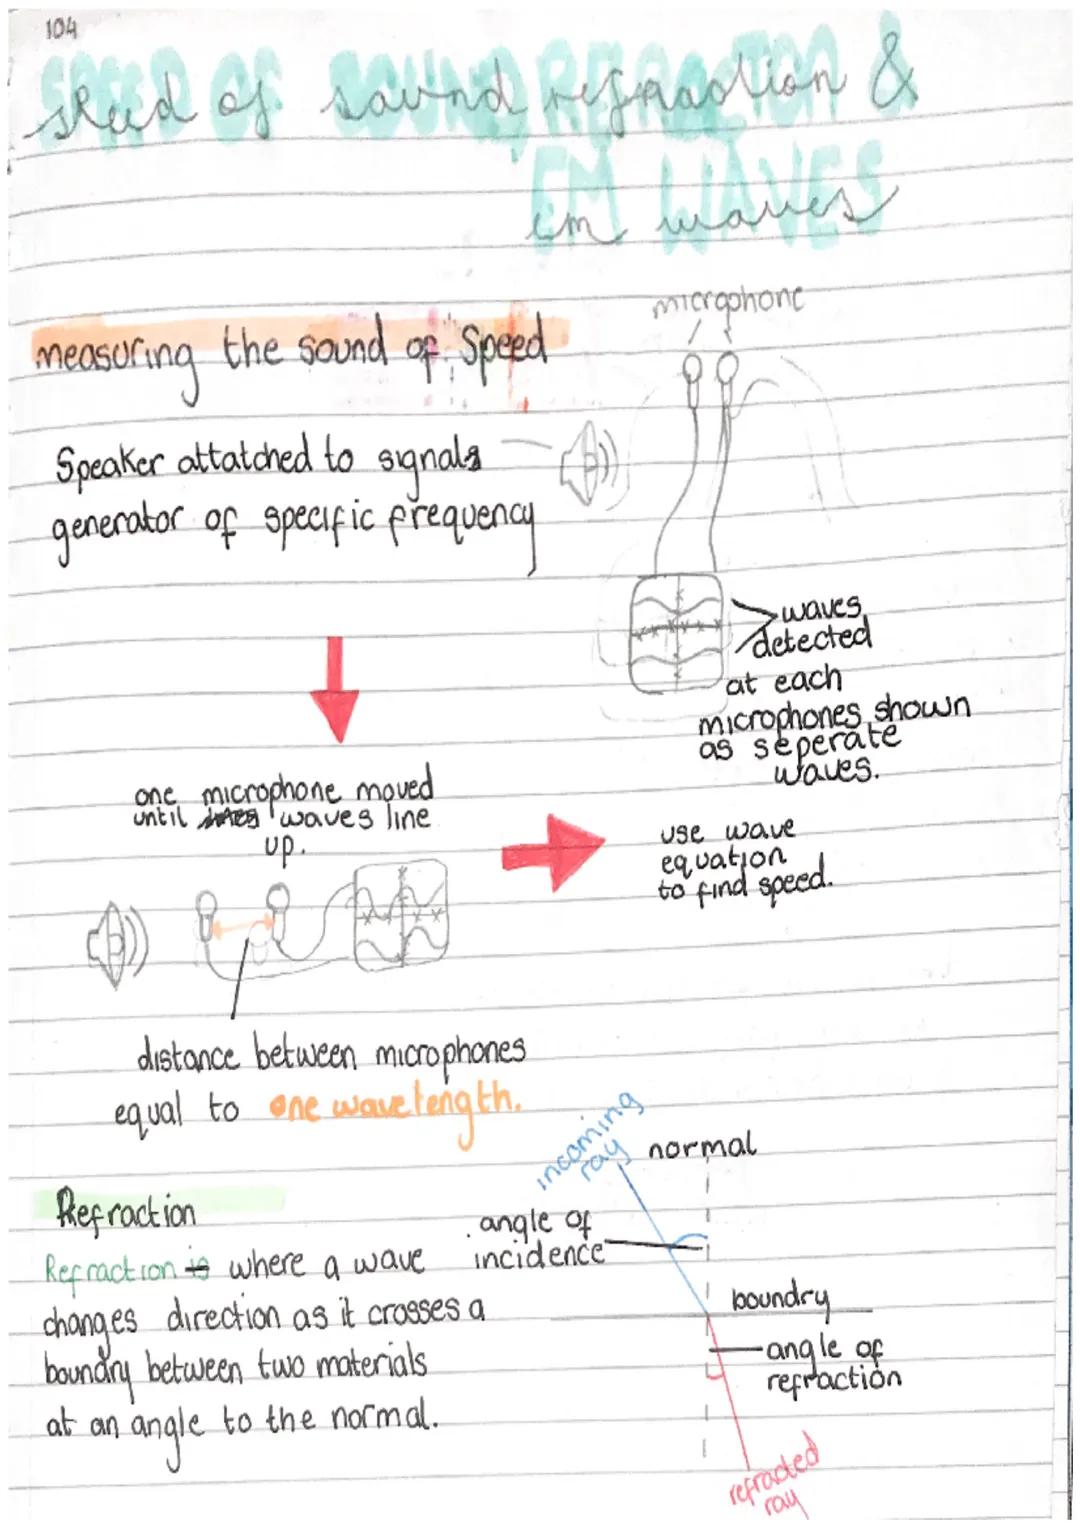 104
SPEED OF SOUND REFRACTION &
speed of sound refraction &
EM WAVES
em waves
microphone
measuring the sound of Speed
Speaker attatched to signals
generator of specific frequency
waves
detected
at each
microphones shown
as seperate
waves.
one microphone moved
until waves line
up.
use wave
equation
to find speed.
distance between microphones
equal to one wavelength.
incoming
ray
normal
Refraction
angle of
incidence
Refraction is where a wave
changes direction as it crosses a
boundry between two materials
at an angle to the normal.
boundry
angle of
refraction
refracted
ray